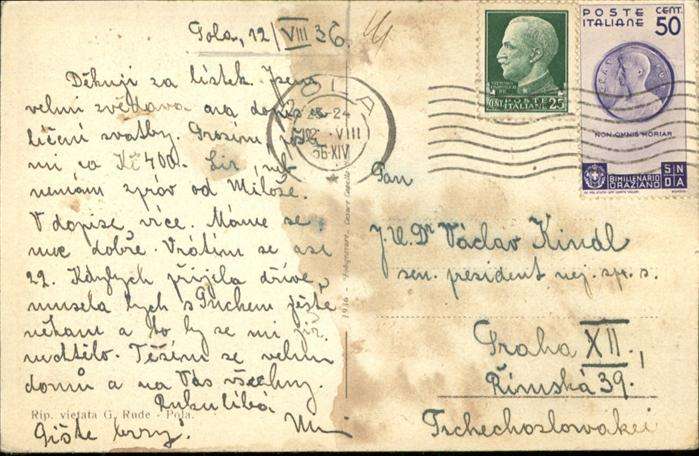 Pola, 12/VIII 36.
Děkuji za lístek. Jsem
velmi zvědava na dopis
líčení svatby. Prosím, 
mi za Kč 400.
nemám zpráv od Miloše.
V dopise více. Máme se
moc dobře. Vrátím se asi
22. Kdybych přijela dříve,
musela bych s Puchem ještě
někam a to by se mi již
nechtělo. Těším se velmi
domů a na Vás všechny.
Ruku líbá
Pište brzy!
Rip. vietata G. Rude - Pola.
POLA
24
VIII
36 XIV
POSTE ITALIANE
25
POSTE ITALIANE
CENT. 50
NON·OMNIS·MORIAR
BIMILLENARIO ORAZIANO
Pan
J.U.Dr Václav Kindl
sen. president nej. sp. s.
Praha XII.,
Římská 39.
Tschechoslowakei
1936